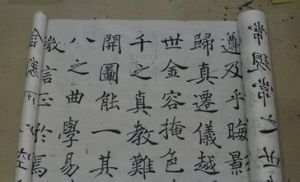 常現常之世
遵及乎晦景
歸真遷儀越
世金容掩色
千之真教難
開圖能一其
八之曲學易
微言正於焉